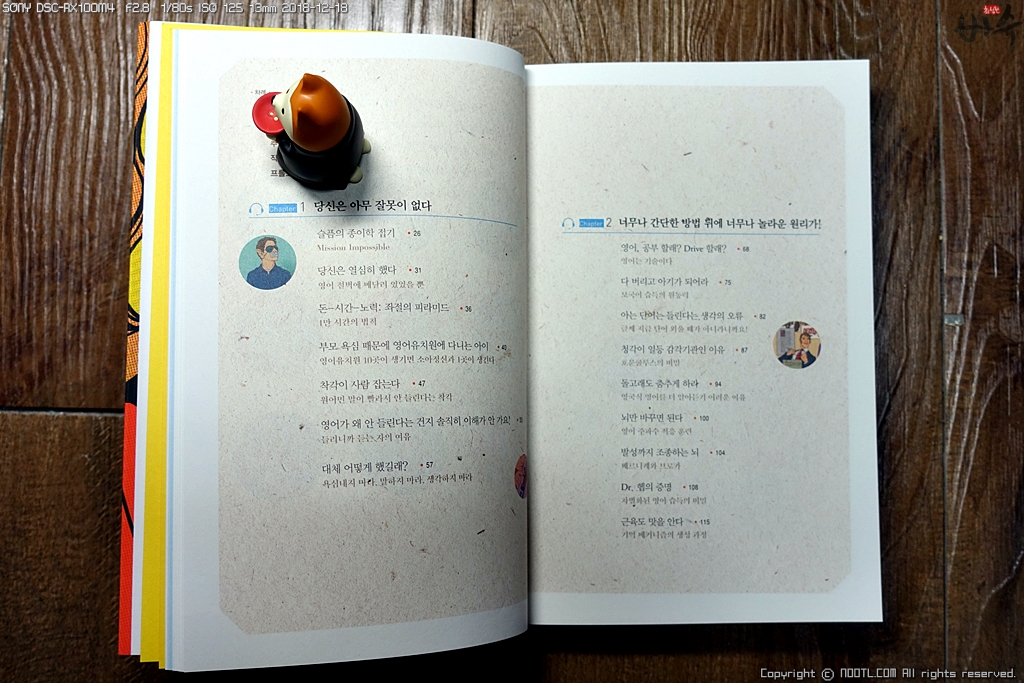 SONY DSC-RX100M4 F2.8 1/80s ISO 125 13mm 2018-12-18
차례
Chapter 1 당신은 아무 잘못이 없다
슬픔의 종이학 접기 • 26
Mission Impossible
당신은 열심히 했다 • 31
영어 절벽에 매달려 있었을 뿐
돈-시간-노력: 좌절의 피라미드 • 36
1만 시간의 법칙
부모 욕심 때문에 영어유치원에 다니는 아이 • 40
영어유치원 10곳이 생기면 소아정신과 1곳이 생긴다
착각이 사람 잡는다 • 47
원어민 말이 빨라서 안 들린다는 착각
영어가 왜 안 들린다는 건지 솔직히 이해가 안 가요!
들리니까 듣는 자의 여유
대체 어떻게 했길래? • 57
욕심내지 마라, 말하지 마라, 생각하지 마라
Chapter 2 너무나 간단한 방법 뒤에 너무나 놀라운 원리가!
영어, 공부 할래? Drive 할래? • 68
영어는 기술이다
다 버리고 아기가 되어라 • 75
모국어 습득의 원동력
아는 단어는 들린다는 생각의 오류 • 82
글쎄 지금 단어 외울 때가 아니라니까요!
청각이 일등 감각기관인 이유 • 87
돌고래도 춤추게 하라 • 94
영국식 영어를 더 알아듣기 어려운 이유
뇌만 바꾸면 된다 • 100
영어 주파수 적응 훈련
발성까지 조종하는 뇌 • 104
베르니케와 브로카
Dr. 헵의 증명 • 108
차별화된 영어 습득의 비밀
근육도 맛을 안다 • 115
기억 메커니즘의 생성 과정
Copyright ⓒ NOOTL.COM All rights reserved.